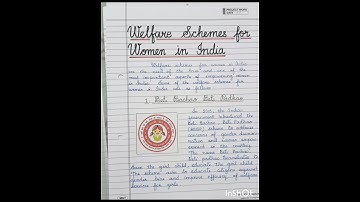 PROJECT WORK
DATE
Welfare Schemes for
Women in India
Welfare schemes for women in India
are the need of the time and one of the
most important aspects of empowering women
in India. Some of the welfare schemes for
women in India are as follows :
1. Beti Bachao Beti Padhao
In 2015, the Indian
government introduced the
Beti Bachao Beti Padhao
(BBBP) scheme to address
concerns of gender discrimi-
nation and women empo-
werment in the country.
The name Beti Bachao
Beti Padhao translates to
'Save the girl child, educate the girl child'
The scheme aims to educate citizens against
gender bias and improve efficacy of welfare
services for girls
InShOt